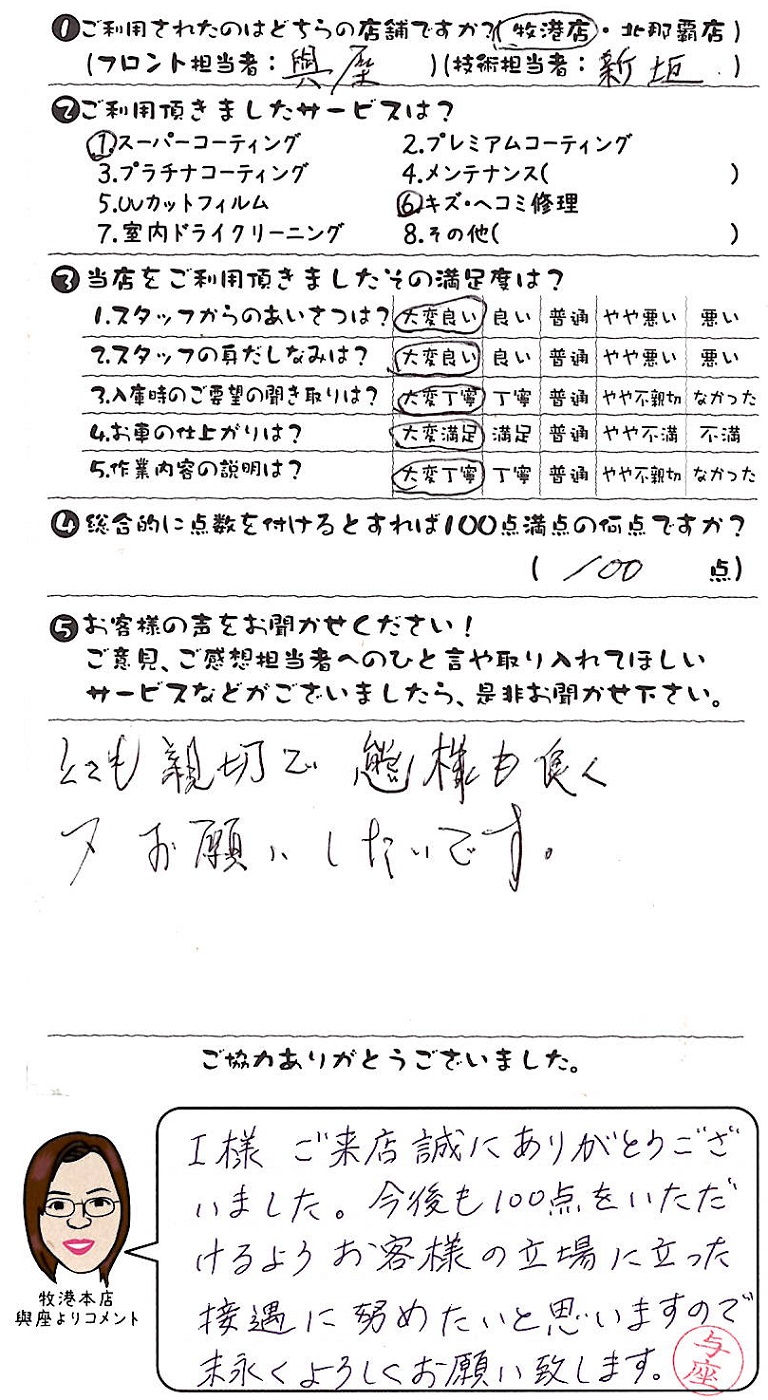 ❶ご利用されたのはどちらの店舗ですか?(牧港店・北那覇店)
(フロント担当者:與座)(技術担当者:新垣)
❷ご利用頂きましたサービスは?
1.スーパーコーティング 2.プレミアムコーティング
3.プラチナコーティング 4.メンテナンス( )
5.UVカットフィルム 6.キズ・ヘコミ修理
7.室内ドライクリーニング 8.その他( )
❸当店をご利用頂きましたその満足度は?
1.スタッフからのあいさつは? 大変良い 良い 普通 やや悪い 悪い
2.スタッフの身だしなみは? 大変良い 良い 普通 やや悪い 悪い
3.入庫時のご要望の聞き取りは? 大変丁寧 丁寧 普通 やや不親切 なかった
4.お車の仕上がりは? 大変満足 満足 普通 やや不満 不満
5.作業内容の説明は? 大変丁寧 丁寧 普通 やや不親切 なかった
❹総合的に点数を付けるとすれば100点満点の何点ですか?
( 100 点)
❺お客様の声をお聞かせください!
ご意見、ご感想担当者へのひと言や取り入れてほしい
サービスなどがございましたら、是非お聞かせ下さい。
とても親切で 態様も良く
又 お願いしたいです。
ご協力ありがとうございました。
I様 ご来店誠にありがとうござ
いました。今後も100点をいただ
けるようお客様の立場に立った
接遇に努めたいと思いますので
末永くよろしくお願い致します。
与座
牧港本店
與座よりコメント